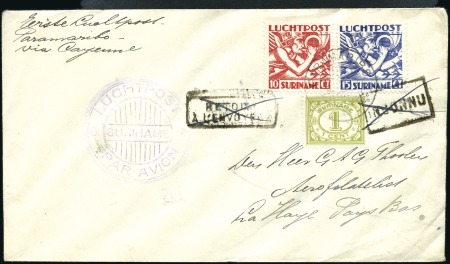 Eerste Luchtpost.
Paramaribo -
via Cayenne
LUCHTPOST
SURINAME
PAR AVION
RETOUR
À L'ENVOYEUR
LUCHTPOST
10 SURINAME
LUCHTPOST
15 SURINAME
1
CENT
INCONNU
Den Heer G A G Thoolen
Aerofilatelist
La Haye Pays Bas